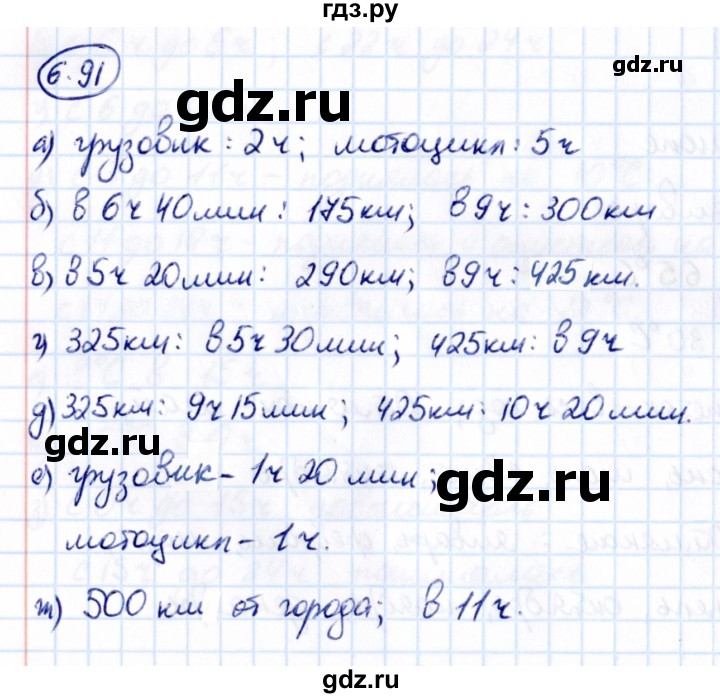 гдз.ру
6.91
gdz.ru
gdz.ru
а) грузовик: 2ч; мотоцикл: 5ч
б) в 6ч 40мин: 175км; в 9ч: 300км
в) в 5ч 20мин: 290км; в 9ч: 425км.
г) 325км: в 5ч 30мин; 425км: в 9ч
д) 325км: 9ч 15мин; 425км: 10ч 20мин.
gdz.ru
е) грузовик - 1ч 20 мин;
gdz.ru
мотоцикл - 1ч.
ж) 500 км от города; в 11ч.